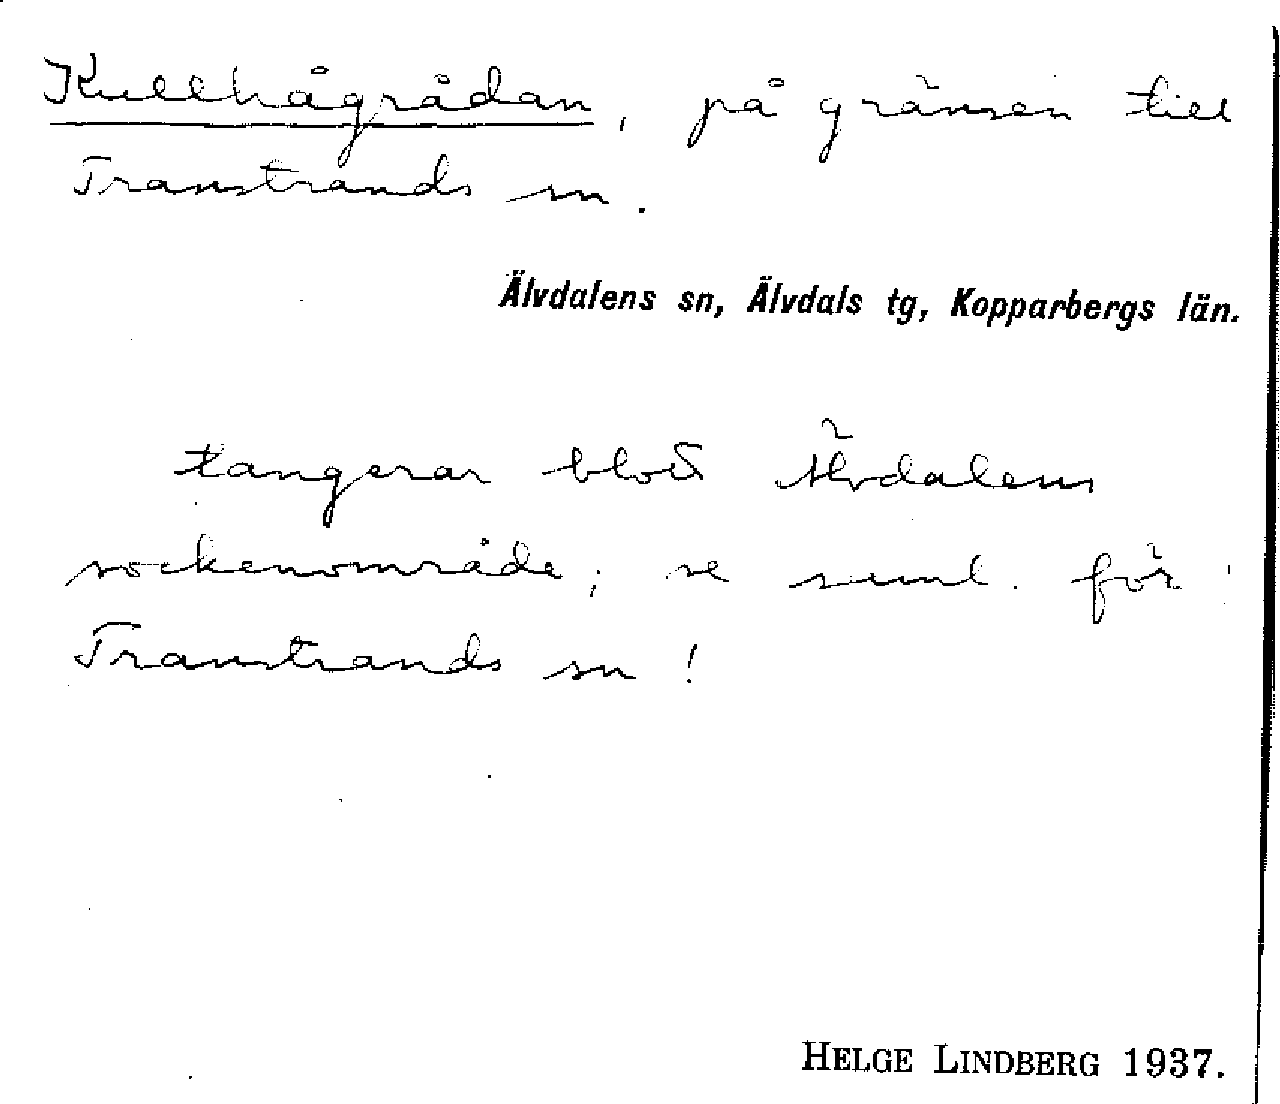 Kullhågrådan, på gränsen till
Transtrands sn.
Älvdalens sn, Älvdals tg, Kopparbergs län.
tangerar blott Älvdalens
sockenområde; se saml. för
Transtrands sn!
HELGE LINDBERG 1937.